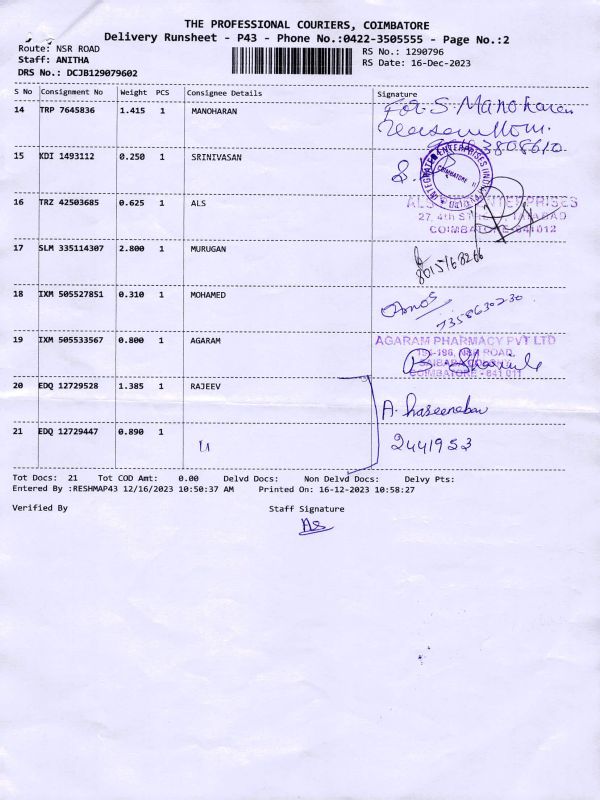 THE PROFESSIONAL COURIERS, COIMBATORE
Delivery Runsheet - P43 - Phone No.:0422-3505555 - Page No.:2
Route: NSR ROAD
RS No.: 1290796
Staff: ANITHA
RS Date: 16-Dec-2023
DRS No.: DCJB129079602
S No Consignment No Weight PCS Consignee Details Signature
14 TRP 7645836 1.415 1 MANOHARAN
For S. Manoharan
15 KDI 1493112 0.250 1 SRINIVASAN
INTEGRATED ENTERPRISES
COIMBATORE
16 TRZ 42503685 0.625 1 ALS
ALS ENTERPRISES
27, 4th
COIMBATORE-641012
17 SLM 335114307 2.800 1 MURUGAN
8015168266
18 IXM 505527851 0.310 1 MOHAMED
7358630230
19 IXM 505533567 0.800 1 AGARAM
AGARAM PHARMACY PVT LTD
NSR ROAD,
COIMBATORE - 641 011
20 EDQ 12729528 1.385 1 RAJEEV
A. haseenabav
21 EDQ 12729447 0.890 1
2441953
Tot Docs: 21 Tot COD Amt: 0.00 Delvd Docs: Non Delvd Docs: Delvy Pts:
Entered By :RESHMAP43 12/16/2023 10:50:37 AM Printed On: 16-12-2023 10:58:27
Verified By Staff Signature